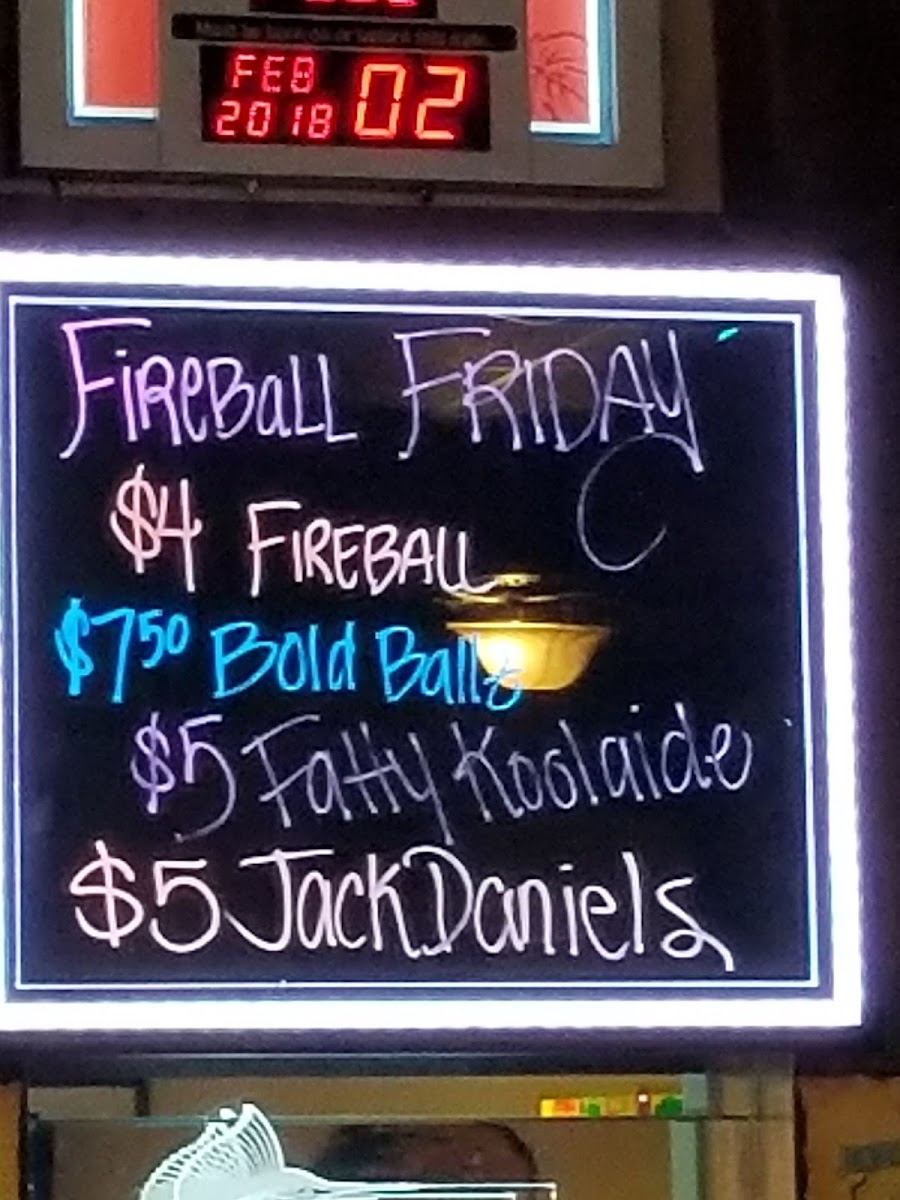 FEB
2018 02
FIREBALL FRIDAY
$4 FIREBALL
$7.50 Bold Balls
$5 Fatty Koolaide
$5 Jack Daniels